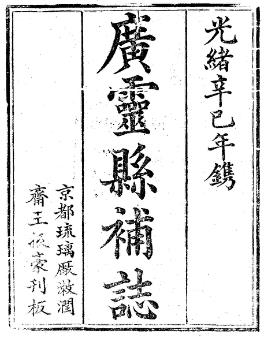 光緒辛巳年鐫
廣靈縣補誌
京都琉璃厰敘潤
齋王依豪刊板